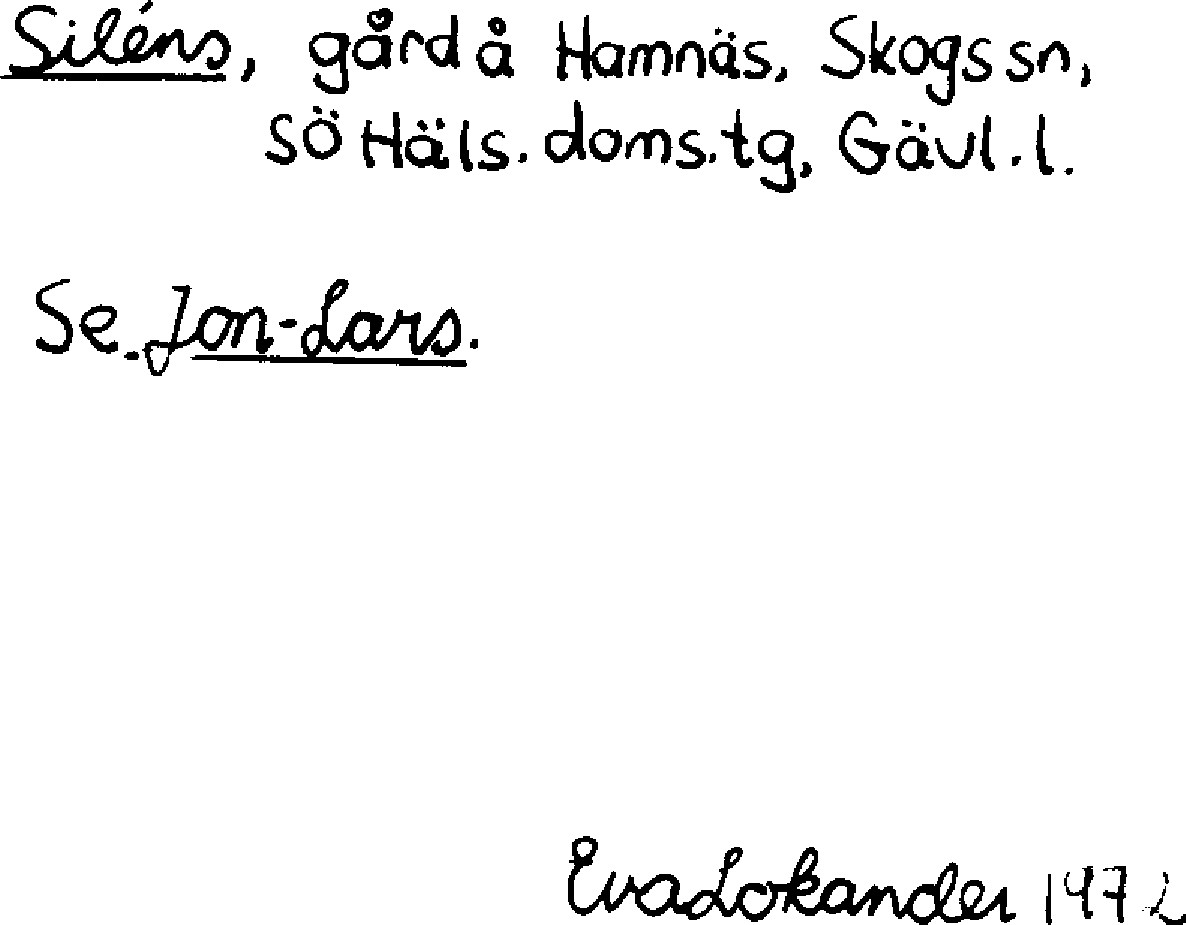 Siléns, gård å Hamnäs, Skogs sn,
SÖ Häls. doms.tg, Gävl. l.
Se Jon-Lars.
Eva Lokander 1972